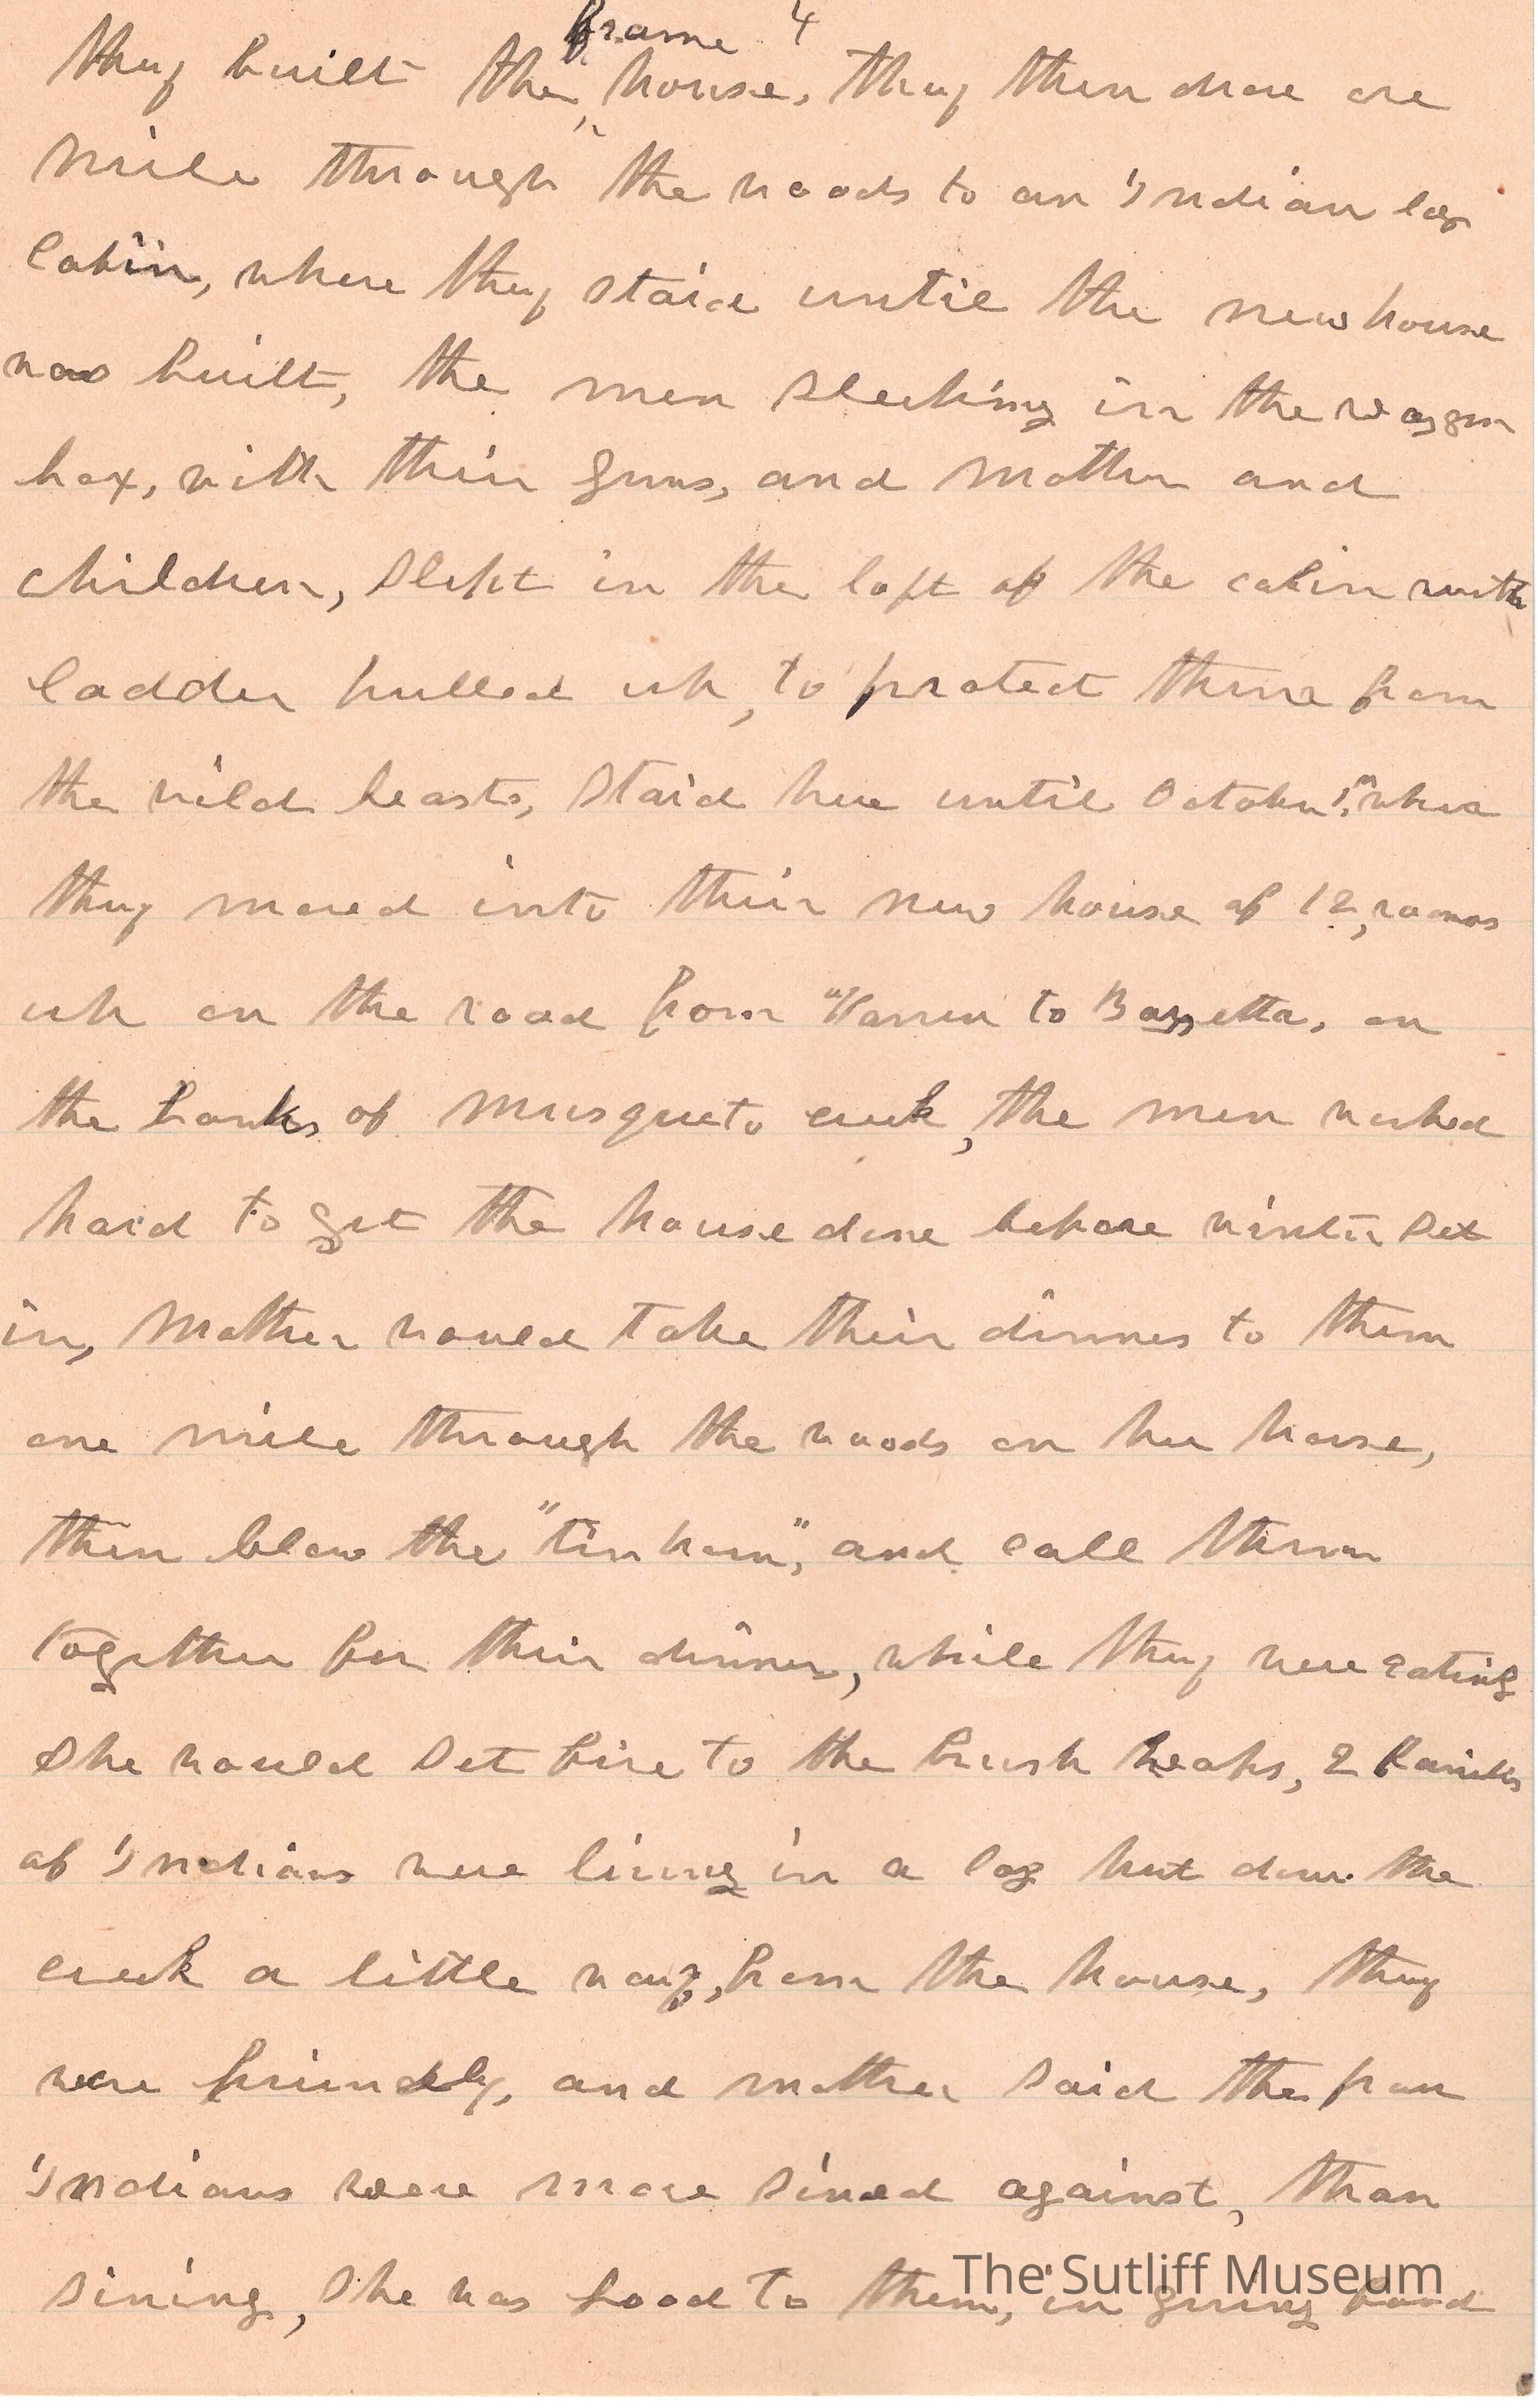 frame 4
they built the house, they then drove one
mile through the woods to an Indian log
cabin, where they staid until the new house
was built, the men sleeping in the waggon
box, with their guns, and mother and
children, slept in the loft of the cabin with
ladder pulled up, to protect them from
the wild beasts, staid here until October 1st, when
they moved into their new house of 12, rooms
up on the road from Warren to Bazzetta, on
the banks of Musqueto creek, the men worked
hard to get the house done before winter set
in, Mother would take their dinner to them
one mile through the woods on her horse,
then blow the "tin horn", and call them
together for their dinner, while they were eating
she would set fire to the brush heaps, 2 families
of Indians were living in a log hut down the
creek a little way, from the house, they
were friendly, and mother said the poor
Indians were more sined against, than
sining, she was good to them, in giving food
The Sutliff Museum